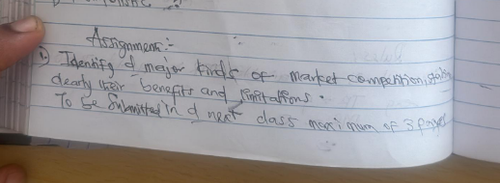 Assignment:-
1. Identify d major kinds of market competition, stating
clearly their benefits and limitations.
To be Submitted in d next class maximum of 3 pages